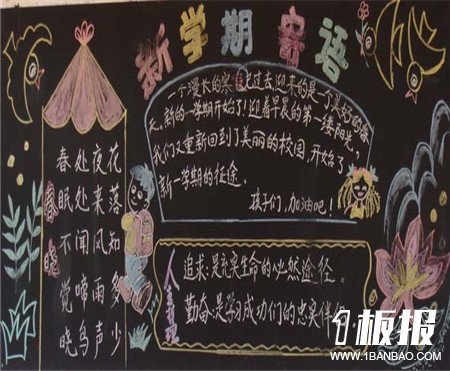 新学期寄语
一个漫长的寒假已过去,迎来的是一个美好的春
天,新的一学期开始了!迎着早晨的第一缕阳光,
我们又重新回到了美丽的校园,开始了
新一学期的征途。
孩子们,加油吧!
春晓
春眠不觉晓
处处闻啼鸟
夜来风雨声
花落知多少
人生
追求:是充实生命的必然途径。
勤奋:是学习成功们的忠实伴
1板报
WWW.1BANBAO.COM